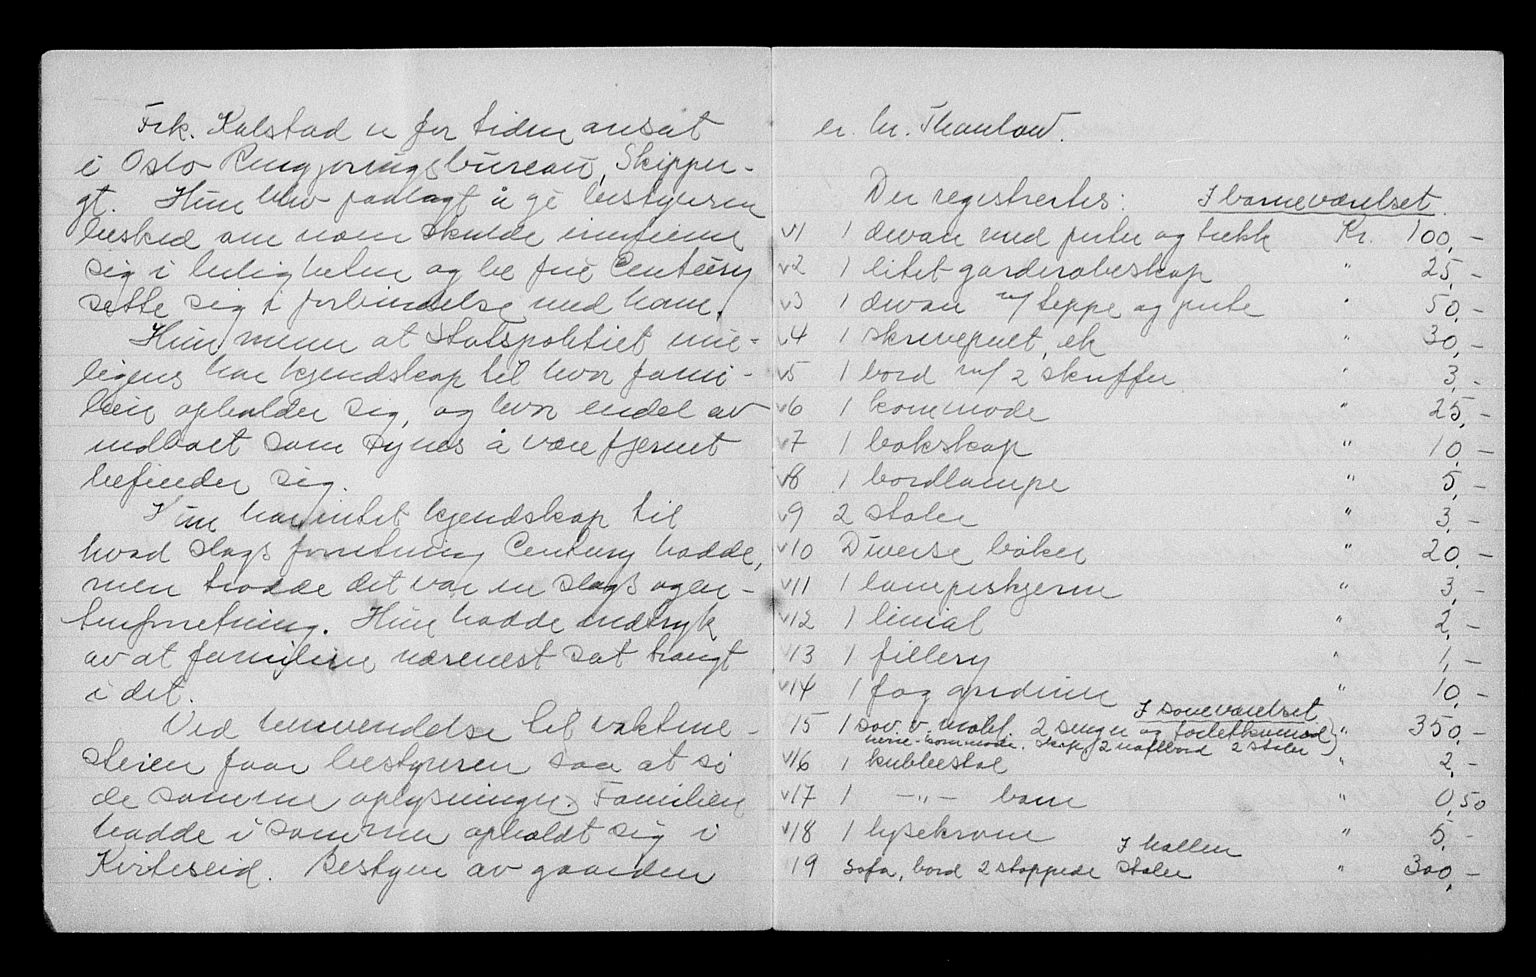 Frk. Kalstad er for tiden ansat
i Oslo Rengjøringsbureau, Skipper-
gt. Hun blev paalagt å gi bestyreren
besked om noen skulde innfinne
sig i leiligheten og be frú Century
sette sig i forbindelse med ham.
Hun mener at Statspolitiet mu-
ligens har kjendskap til hvor fami-
lien opholder sig, og hvor endel av
indboet som synes å være fjernet
befinder sig.
Hun har intet kjendskap til
hvad slags forretning Century hadde,
men trodde det var en slags agen-
turforretning. Hun hadde indtryk
av at familien nærmest sat trangt
i det.
Ved henvendelse til vaktme-
steren faar bestyreren saa at si
de samme oplysninger. Familien
hadde i sommer opholdt sig i
Kviteseid. Bestyrer av gaarden
er hr. Thaulow.
Der registrertes: I barneværelset.
v1 1 divan med puter og trekk Kr. 100,-
v2 1 litet garderobeskap " 25,-
v3 1 divan m/ teppe og pute " 50,-
v4 1 skrivepult, ek " 30,-
v5 1 bord m/ 2 skuffer " 3,-
v6 1 kommode " 25,-
v7 1 bokskap " 10,-
v8 1 bordlampe " 5,-
v9 2 stoler " 3,-
v10 Diverse bøker " 20,-
v11 1 lampeskjerm " 3,-
v12 1 linial " 2,-
v13 1 fillery " 1,-
v14 1 fag gardiner " 10,-
I soveværelset
15 1 sov. v. møbl. 2 senger og toiletkommode " 350,-
herre-kommode. skap, 2 nattbord 2 stoler)
v16 1 kubbestol " 2,-
v17 1 -"- barn " 0,50
v18 1 lysekrone " 5,-
I hallen
19 Sofa, bord 2 stoppede stoler " 300,-